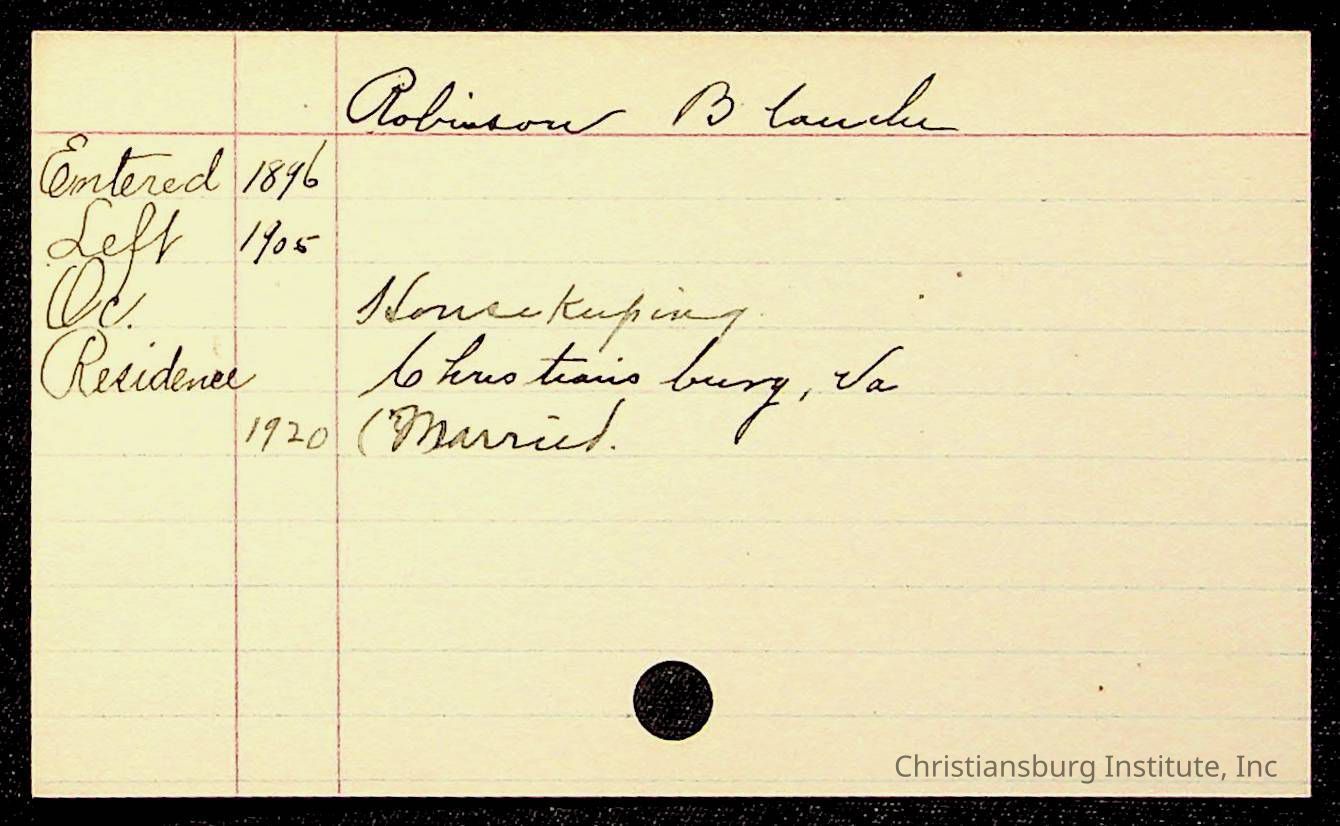 Robinson Blanche
Entered 1896
Left 1905
Oc. Housekeeping
Residence Christiansburg, Va
1920 (Married.
Christiansburg Institute, Inc